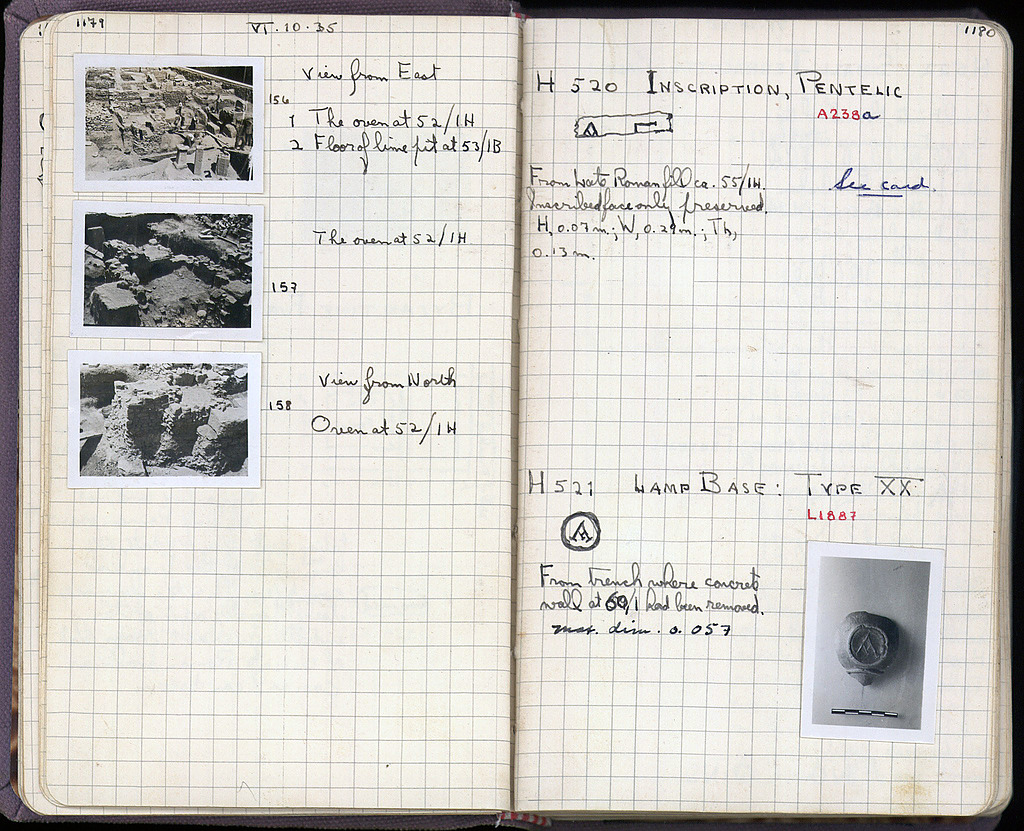 1179
VI·10·35
View from East
156
1 The oven at 52/1H
2 Floor of lime pit at 53/1B
The oven at 52/1H
157
View from North
158
Oven at 52/1H
1180
H 520 INSCRIPTION, PENTELIC
A238a
From Late Roman fill ca. 55/1H.
See card.
Inscribed face only preserved.
H, 0.07m.; W, 0.29m.; Th,
0.13m.
H 521 LAMP BASE: TYPE XX
L1887
A
From trench where concrete
wall at 60/1 had been removed.
max. dim. 0.057